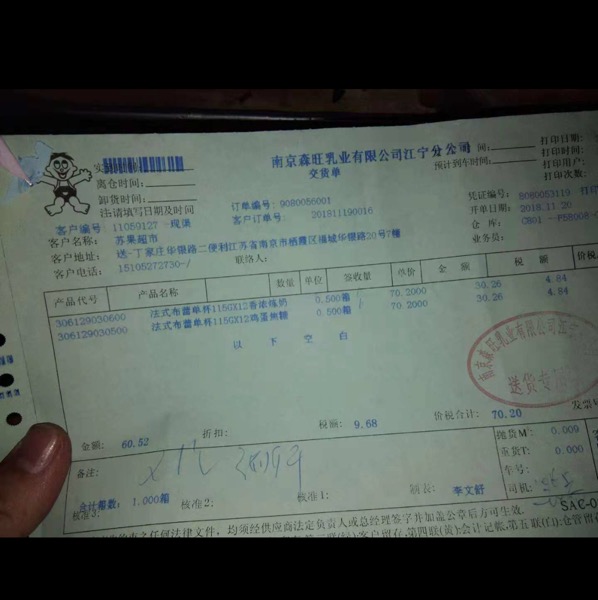 南京森旺乳业有限公司江宁分公司
交货单
离仓时间:
卸货时间:
注:请填写日期及时间
订单编号: 9080086001
客户订单号: 201811190016
预计到车时间:
打印日期:
打印时间:
打印用户:
打印次数:
凭证编号: 8080053119
开单日期: 2018.11.20
仓 库:
业务员:
客户编号 1105012T
客户名称: 苏果超市
客户地址: 送-丁家庄华银路二便利江苏省南京市栖霞区福城华银路20号7幢
客户电话: 15105272730-/ 联络人:
产品代号 产品名称 数量 单位 签收量 单价 金额 税额
306129030600 法式布蕾单杯115GX12香浓炼奶 0.500箱 70.2000 30.26 4.84
306129030500 法式布蕾单杯115GX12鸡蛋焦糖 0.500箱 70.2000 30.26 4.84
以 下 空 白
南京森旺乳业有限公司江宁
送货专
金额: 60.52 折扣: 税额: 9.68 价税合计: 70.20 发票
备注:
抛货M³: 0.009
重货T: 0.000
车号:
司机:
合计箱数: 1.000箱
核准3: 核准2: 核准1: 制表: 李文舒
SAC-0
之任何法律文件，均须经供应商法定负责人或总经理签字并加盖公章后方可生效.
客户留存,第四联(黄):会计记账,第五联